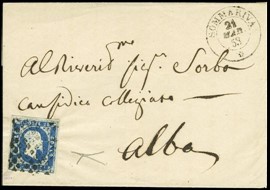 SOMMARIVA
21
MAR
53
Al Riverito Sig. Sorba
Causidico Collegiato
Alba